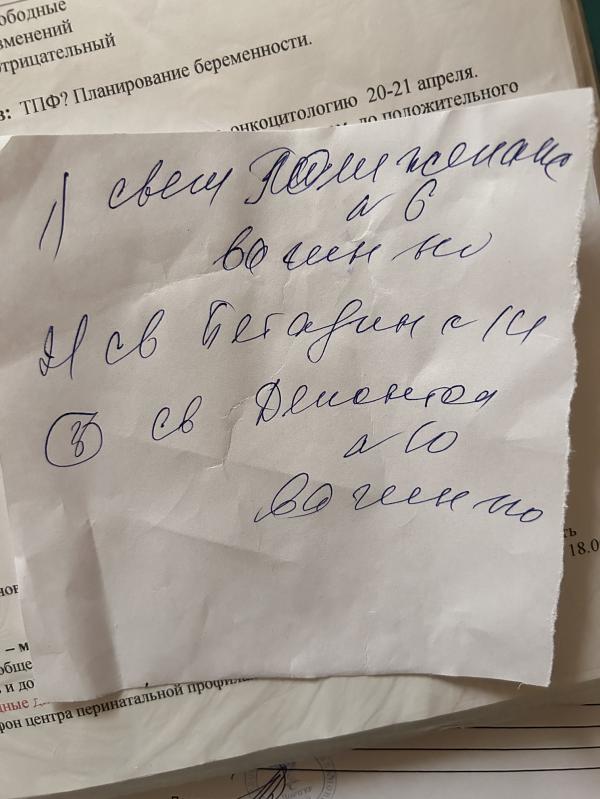 ободные
зменений
трицательный
в: ТПФ? Планирование беременности.
онкоцитологию 20-21 апреля.
до положительного
1) свечи Полижинакс
N 6
вагинально
2) св Бетадин N 14
3) св Депантол
N 10
вагинально
18.0
– м
обще
ь и до
фон центра перинатальной профила